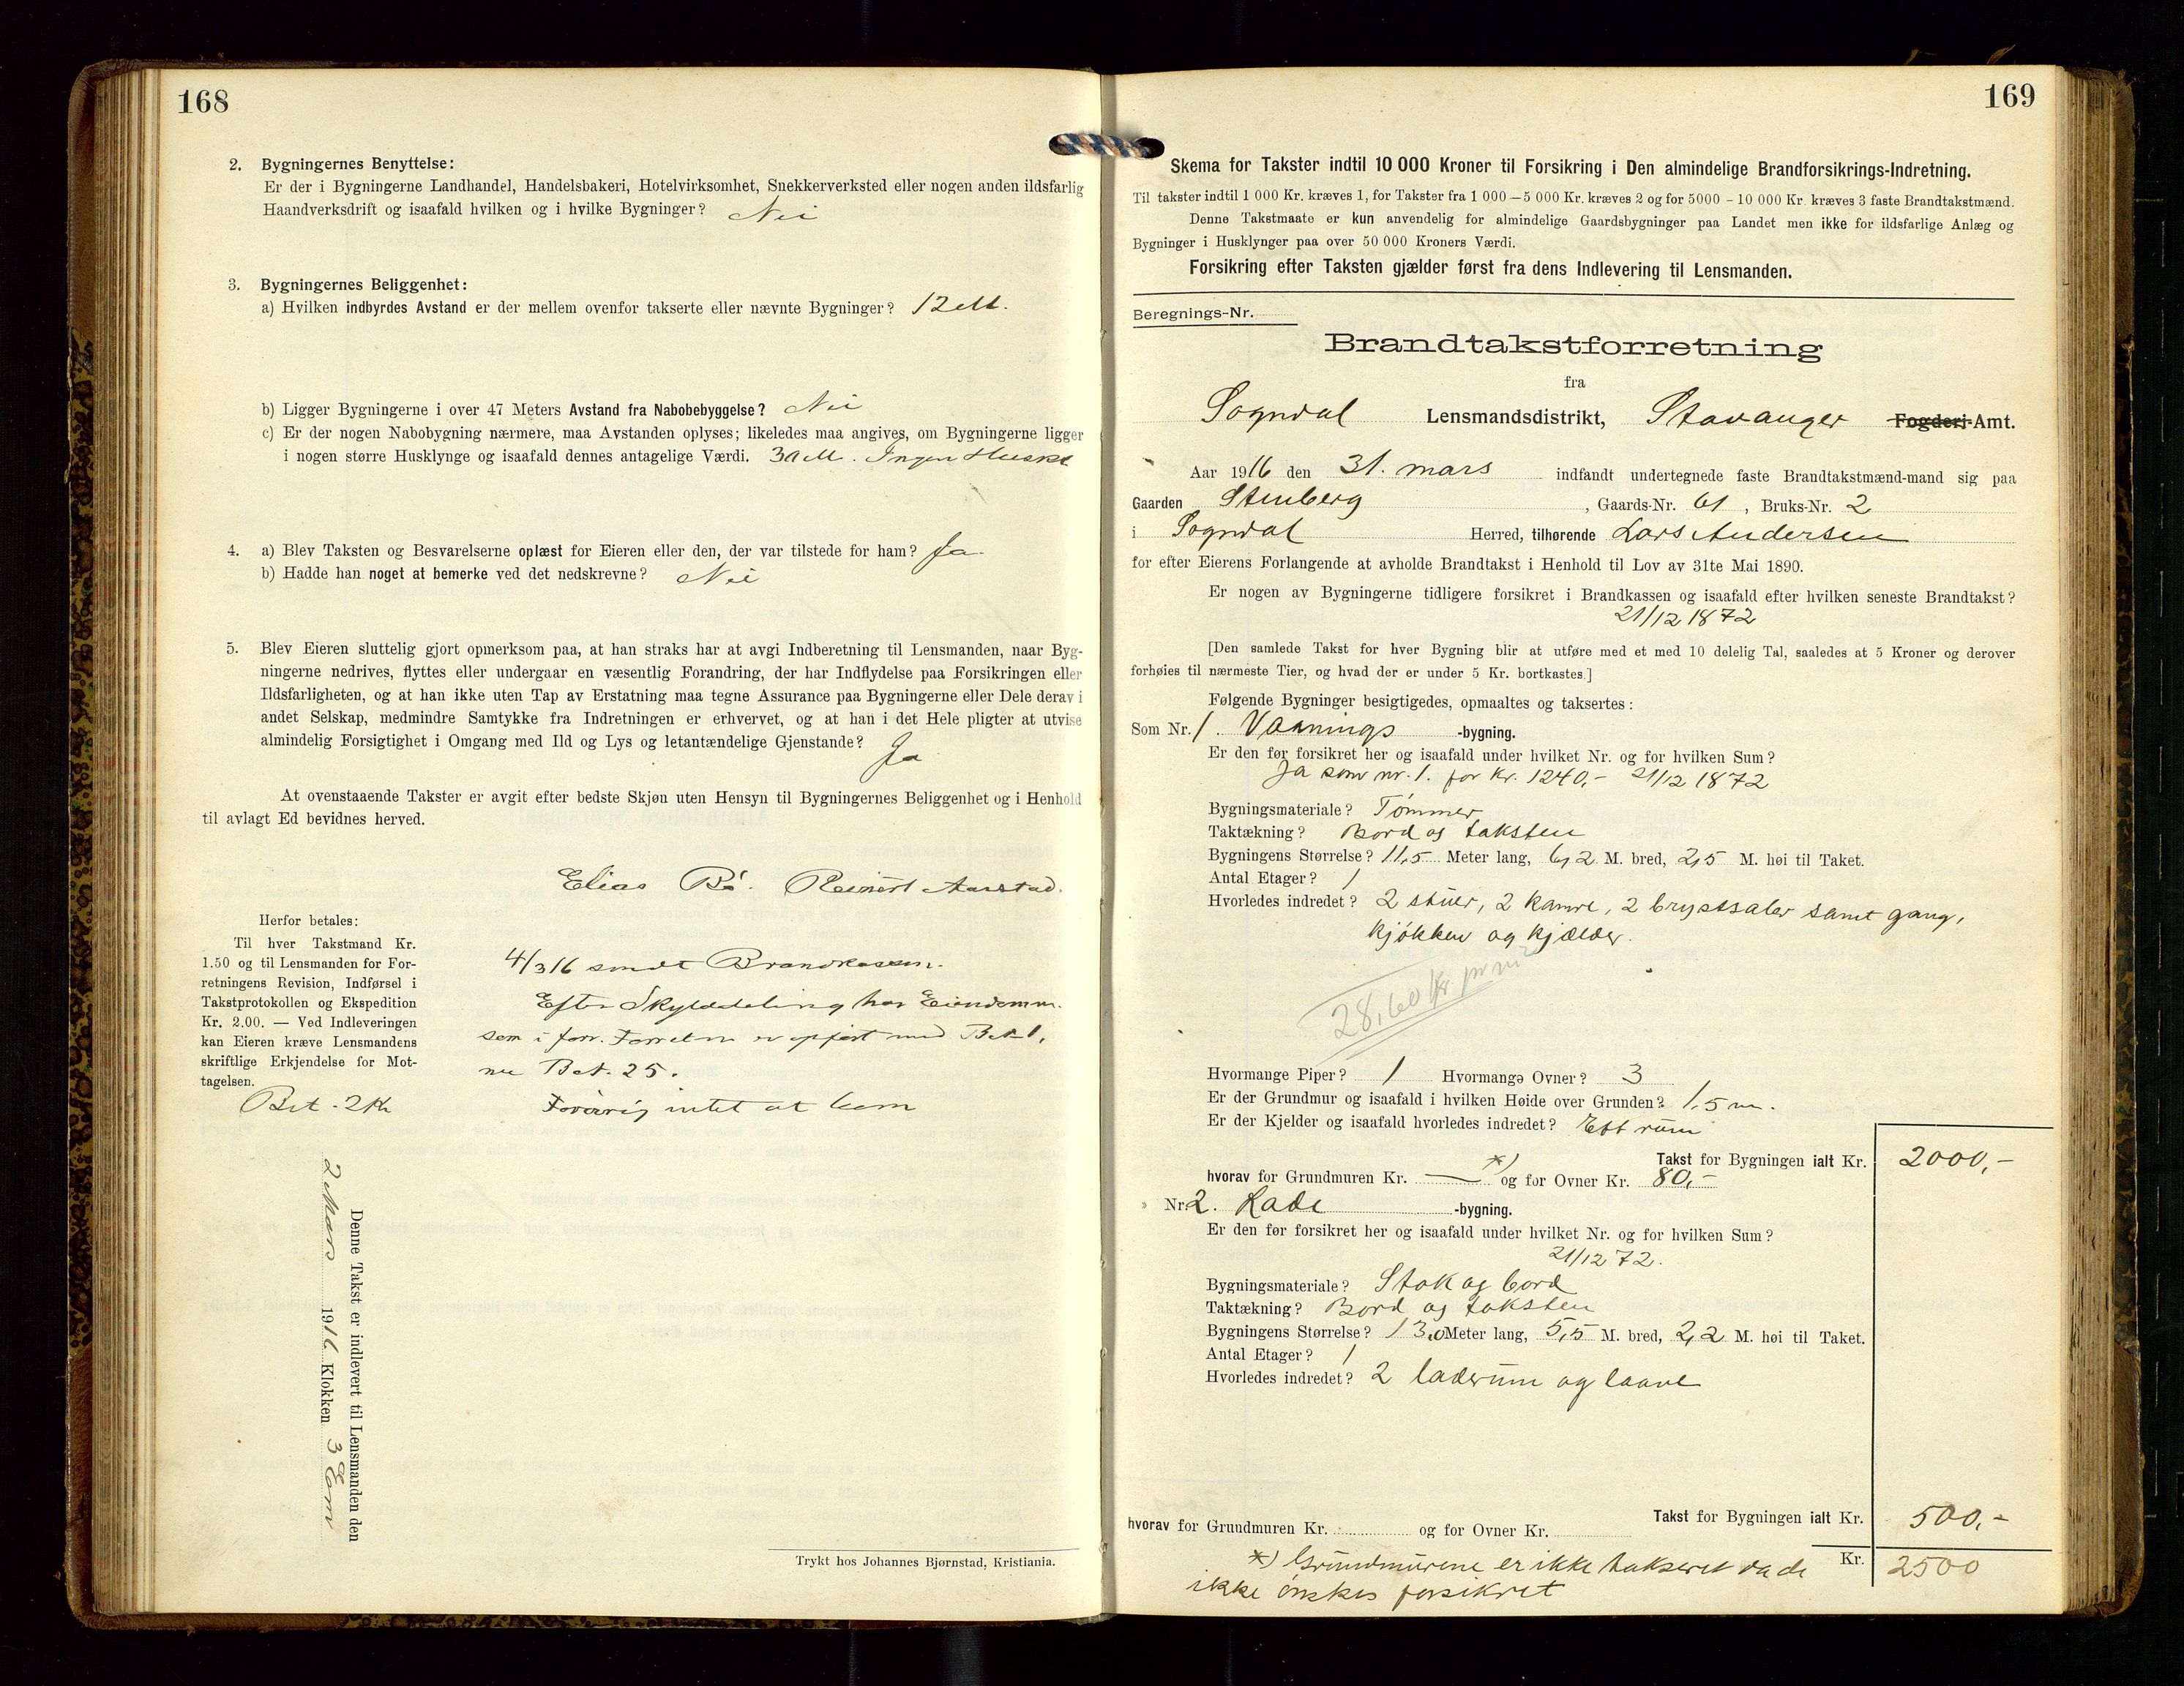 168
2. Bygningernes Benyttelse:
Er der i Bygningerne Landhandel, Handelsbakeri, Hotelvirksomhet, Snekkerverksted eller nogen anden ildsfarlig
Haandverksdrift og isaafald hvilken og i hvilke Bygninger? Nei
3. Bygningernes Beliggenhet:
a) Hvilken indbyrdes Avstand er der mellem ovenfor takserte eller nævnte Bygninger? 12 M.
b) Ligger Bygningerne i over 47 Meters Avstand fra Nabobebyggelse? Nei
c) Er der nogen Nabobygning nærmere, maa Avstanden oplyses; likeledes maa angives, om Bygningerne ligger
i nogen større Husklynge og isaafald dennes antagelige Værdi. M. Ingen
4. a) Blev Taksten og Besvarelserne oplæst for Eieren eller den, der var tilstede for ham? Ja.
b) Hadde han noget at bemerke ved det nedskrevne? Nei
5. Blev Eieren sluttelig gjort opmerksom paa, at han straks har at avgi Indberetning til Lensmanden, naar Byg-
ningerne nedrives, flyttes eller undergaar en væsentlig Forandring, der har Indflydelse paa Forsikringen eller
Ildsfarligheten, og at han ikke uten Tap av Erstatning maa tegne Assurance paa Bygningerne eller Dele derav i
andet Selskap, medmindre Samtykke fra Indretningen er erhvervet, og at han i det Hele pligter at utvise
almindelig Forsigtighet i Omgang med Ild og Lys og letantændelige Gjenstande? Ja
At ovenstaaende Takster er avgit efter bedste Skjøn uten Hensyn til Bygningernes Beliggenhet og i Henhold
til avlagt Ed bevidnes herved.
Elias Bö. Reinert Aarstad.
Herfor betales:
Til hver Takstmand Kr.
1.50 og til Lensmanden for For-
retningens Revision, Indførsel i
Takstprotokollen og Ekspedition
Kr. 2.00. — Ved Indleveringen
kan Eieren kræve Lensmandens
skriftlige Erkjendelse for Mot-
tagelsen.
Bet. 2 Kr
4/3 16 sendt Brandkassen.
Efter Skylddeling har Eiendommen
som i forr. Forretn er opført med Bet 1,
nu Bet. 25.
Forøvrig intet at bem
Denne Takst er indlevert til Lensmanden den
2 Mars 1916 Klokken 3 Em
Trykt hos Johannes Bjørnstad, Kristiania.
169
Skema for Takster indtil 10 000 Kroner til Forsikring i Den almindelige Brandforsikrings-Indretning.
Til takster indtil 1 000 Kr. kræves 1, for Takster fra 1 000—5 000 Kr. kræves 2 og for 5000 - 10 000 Kr. kræves 3 faste Brandtakstmænd.
Denne Takstmaate er kun anvendelig for almindelige Gaardsbygninger paa Landet men ikke for ildsfarlige Anlæg og
Bygninger i Husklynger paa over 50 000 Kroners Værdi.
Forsikring efter Taksten gjælder først fra dens Indlevering til Lensmanden.
Beregnings-Nr.
Brandtakstforretning
fra
Sogndal Lensmandsdistrikt, Stavanger Fogderi-Amt.
Aar 1916 den 31. mars indfandt undertegnede faste Brandtakstmænd-mand sig paa
Gaarden Stenberg, Gaards-Nr. 61, Bruks-Nr. 2
i Sogndal Herred, tilhørende Lars Andersen
for efter Eierens Forlangende at avholde Brandtakst i Henhold til Lov av 31te Mai 1890.
Er nogen av Bygningerne tidligere forsikret i Brandkassen og isaafald efter hvilken seneste Brandtakst?
21/12 1872
[Den samlede Takst for hver Bygning blir at utføre med et med 10 delelig Tal, saaledes at 5 Kroner og derover
forhøies til nærmeste Tier, og hvad der er under 5 Kr. bortkastes.]
Følgende Bygninger besigtigedes, opmaaltes og taksertes:
Som Nr. 1. Vaanings -bygning.
Er den før forsikret her og isaafald under hvilket Nr. og for hvilken Sum?
Ja som nr. 1. for Kr. 1240,- 21/12 1872
Bygningsmateriale? Tömmer
Taktækning? Bord og taksten
Bygningens Størrelse? 11,5 Meter lang, 6,2 M. bred, 2,5 M. høi til Taket.
Antal Etager? 1
Hvorledes indredet? 2 stuer, 2 kamre, 2 brystsaler samt gang,
kjökken og kjælder.
28,60 Kr pr m²
Hvormange Piper? 1 Hvormange Ovner? 3
Er der Grundmur og isaafald i hvilken Høide over Grunden? 1,5 m.
Er der Kjelder og isaafald hvorledes indredet? Ett rum
Takst for Bygningen ialt Kr. 2000,-
hvorav for Grundmuren Kr. — *) og for Ovner Kr. 80,-
Nr. 2. Lade -bygning.
Er den før forsikret her og isaafald under hvilket Nr. og for hvilken Sum?
21/12 72.
Bygningsmateriale? Stok og bord
Taktækning? Bord og taksten
Bygningens Størrelse? 13,0 Meter lang, 5,5 M. bred, 2,2 M. høi til Taket.
Antal Etager? 1
Hvorledes indredet? 2 laderum og laave
Takst for Bygningen ialt Kr. 500,-
hvorav for Grundmuren Kr. og for Ovner Kr.
Kr. 2500
*) Grundmurene er ikke takseret da de
ikke önskes forsikret